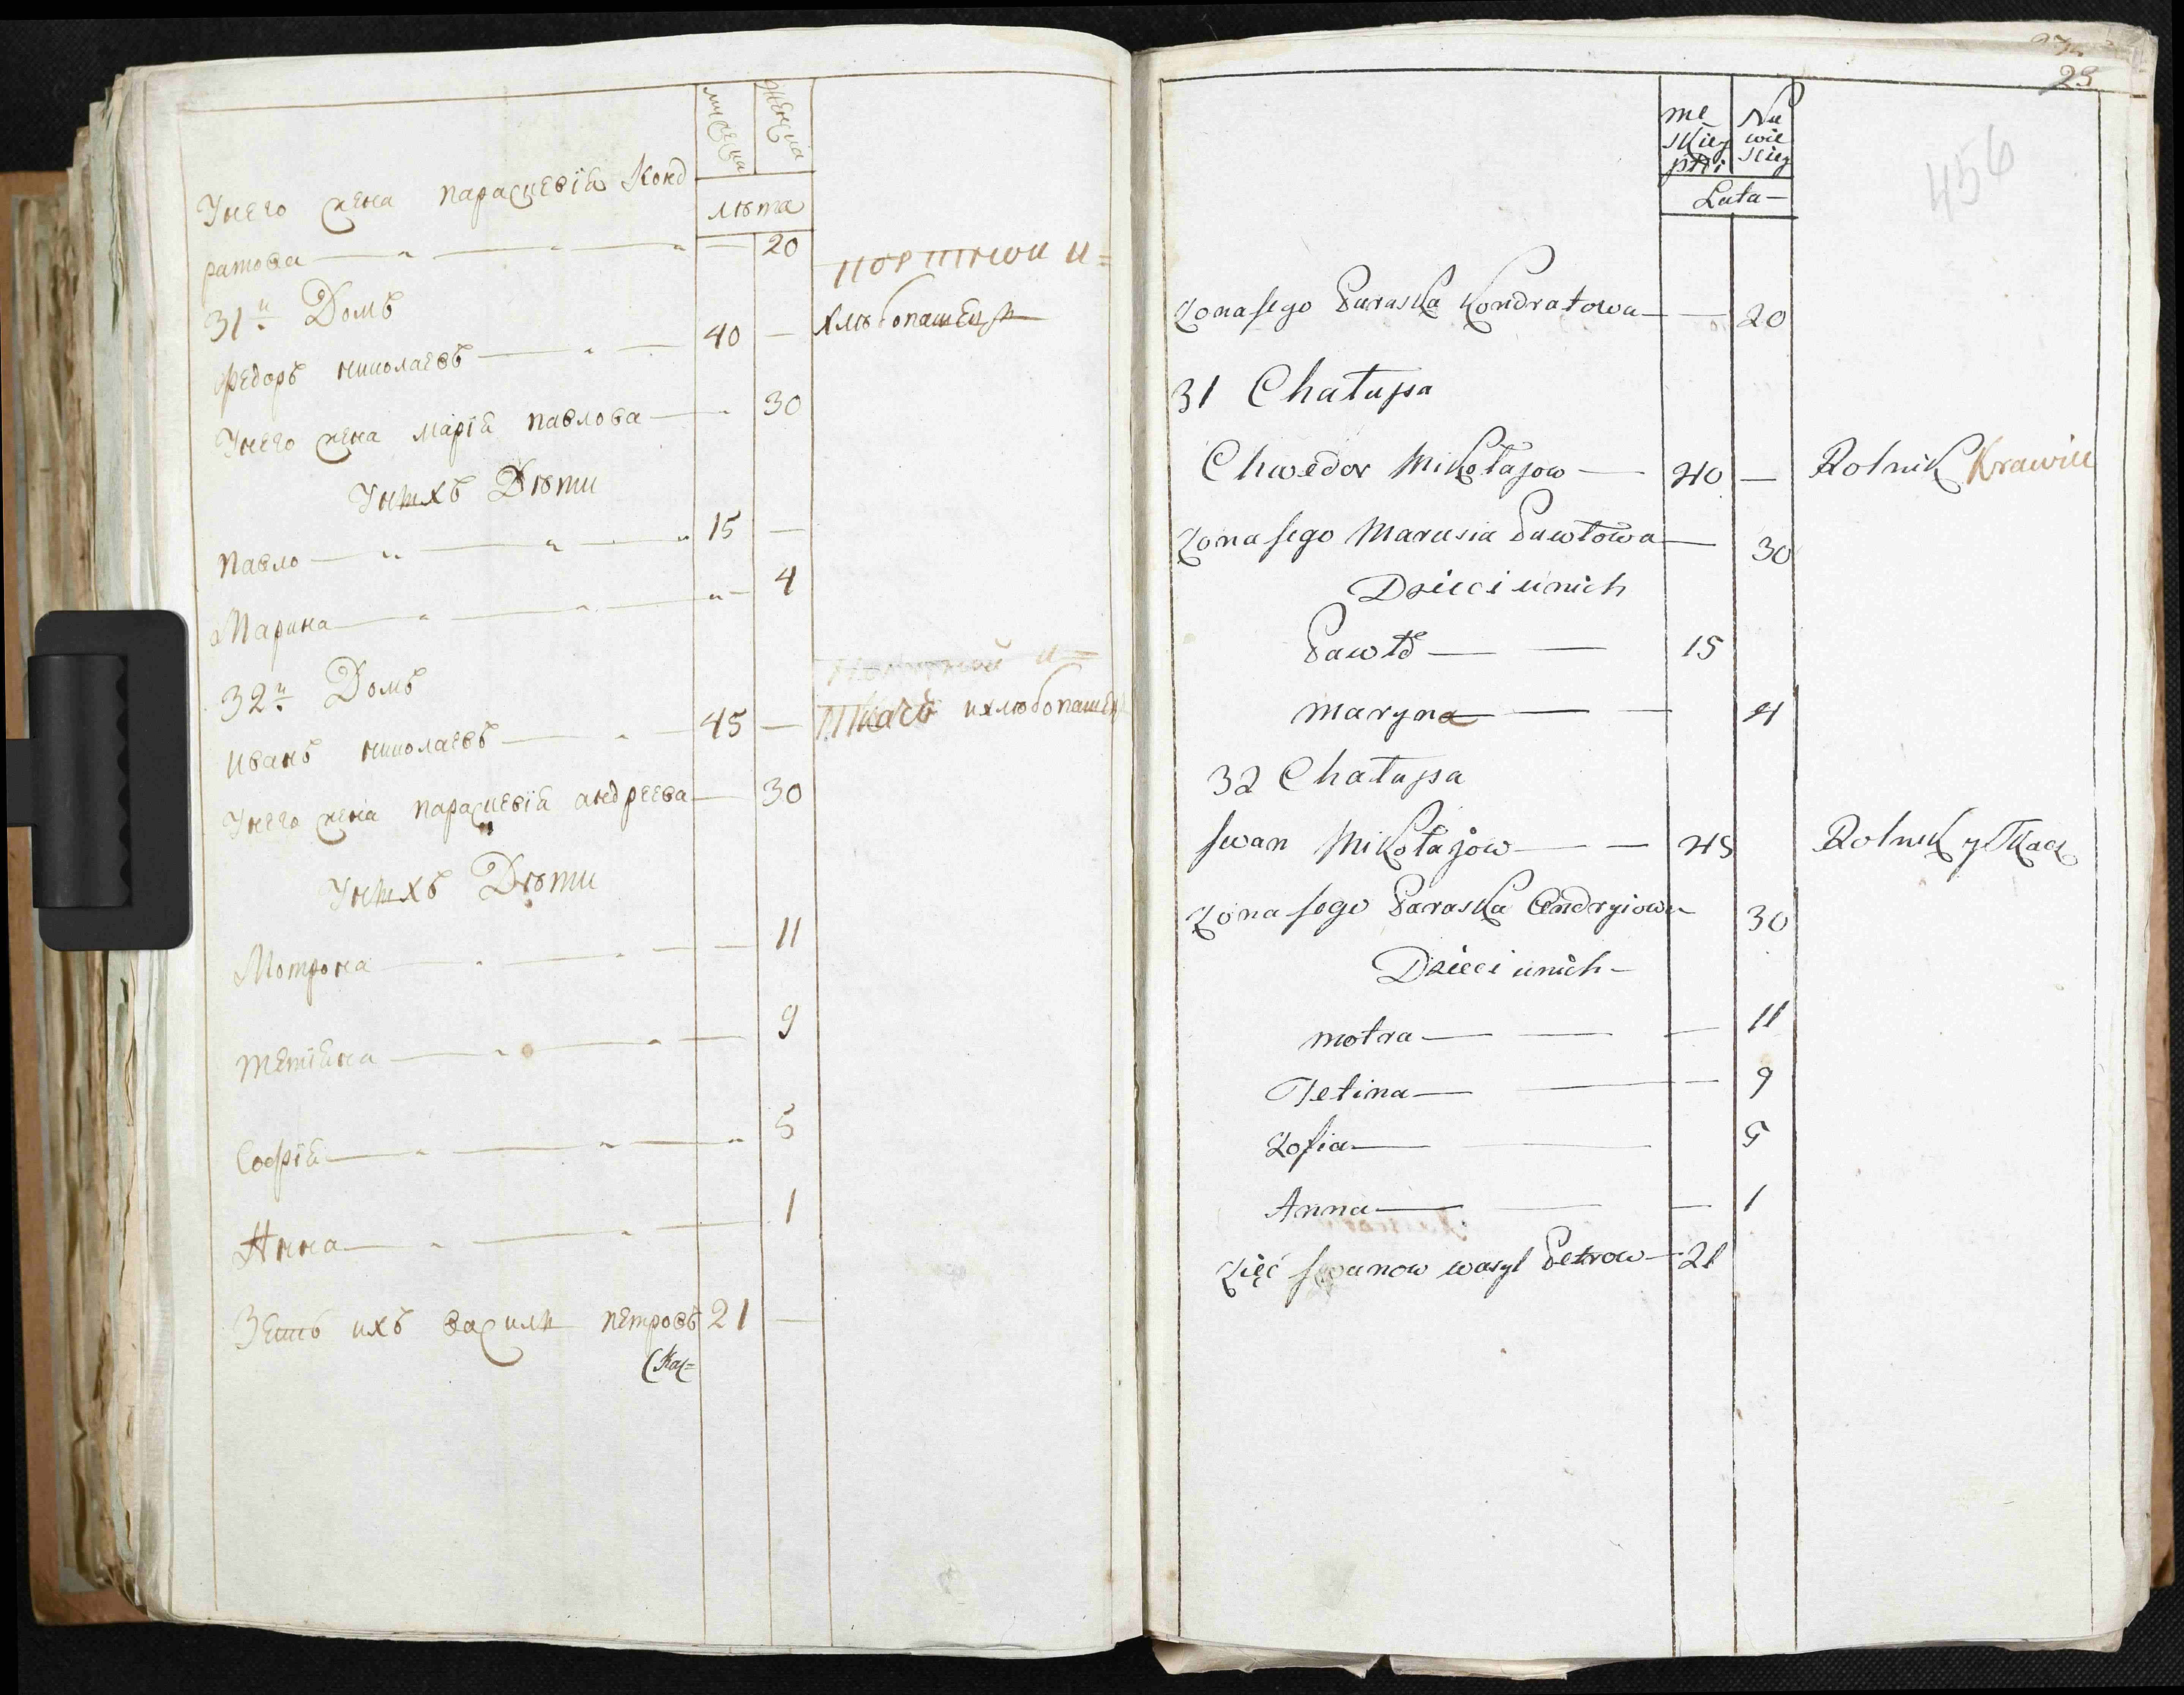 мужеска женска
лѣта
Унего жена параскевія Конд
ратова 20
31й Домъ
портной и=
Федоръ николаевъ 40 — хлѣбопашецъ
Унего жена марія павлова 30
Унихъ Дѣти
павло 15 —
Марина 4
32й Домъ
портной и=
иванъ николаевъ 45 — Ткачъ и хлѣбопашец
Унего жена параскевія андреева 30
Унихъ Дѣти
Мотрона 11
тетіана 9
Софія 5
Анна 1
Зеть ихъ васили петровъ 21 —
23
456
me skiey płci
Nie wie skiey
Lata
Zona jego Paraska Kondratowa 20
31 Chałupa
Chwedor Mikołajow 40 — Rolnik Krawiec
Zona jego Marusia Pawłowa 30
Dzieci u nich
Pawło 15
maryna 4
32 Chałupa
Iwan Mikołajow 45 Rolnik y Tkacz
Zona jego Paraska Andryiowa 30
Dzieci u nich
motra 11
Tetina 9
Zofia 5
Anna 1
Zięć Iwanow wasyl Petrow 21